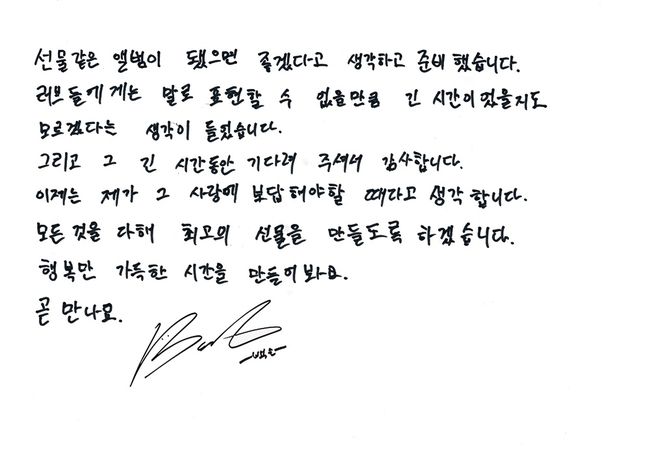 선물같은 앨범이 됐으면 좋겠다고 생각하고 준비했습니다.
러브들에게는 말로 표현할 수 없을만큼 긴 시간이었을지도
모르겠다는 생각이 들었습니다.
그리고 그 긴 시간동안 기다려 주셔서 감사합니다.
이제는 제가 그 사랑에 보답해야할 때라고 생각합니다.
모든 것을 다해 최고의 선물을 만들도록 하겠습니다.
행복만 가득한 시간을 만들어봐요.
곧 만나요.